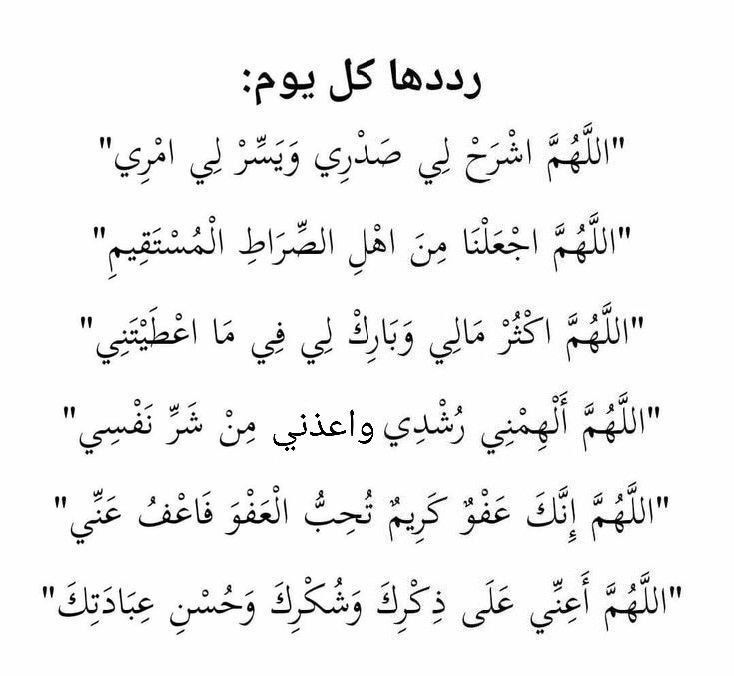 رددها كل يوم:
"اللَّهُمَّ اشْرَحْ لِي صَدْرِي وَيَسِّرْ لِي امْرِي"
"اللَّهُمَّ اجْعَلْنَا مِنَ اهْلِ الصِّرَاطِ الْمُسْتَقِيمِ"
"اللَّهُمَّ اكْثُرْ مَالِي وَبَارِكْ لِي فِي مَا اعْطَيْتَنِي"
"اللَّهُمَّ أَلْهِمْنِي رُشْدِي واعذني مِنْ شَرِّ نَفْسِي"
"اللَّهُمَّ إِنَّكَ عَفْوٌ كَرِيمٌ تُحِبُّ الْعَفْوَ فَاعْفُ عَنِّي"
"اللَّهُمَّ أَعِنِّي عَلَى ذِكْرِكَ وَشُكْرِكَ وَحُسْنِ عِبَادَتِكَ"